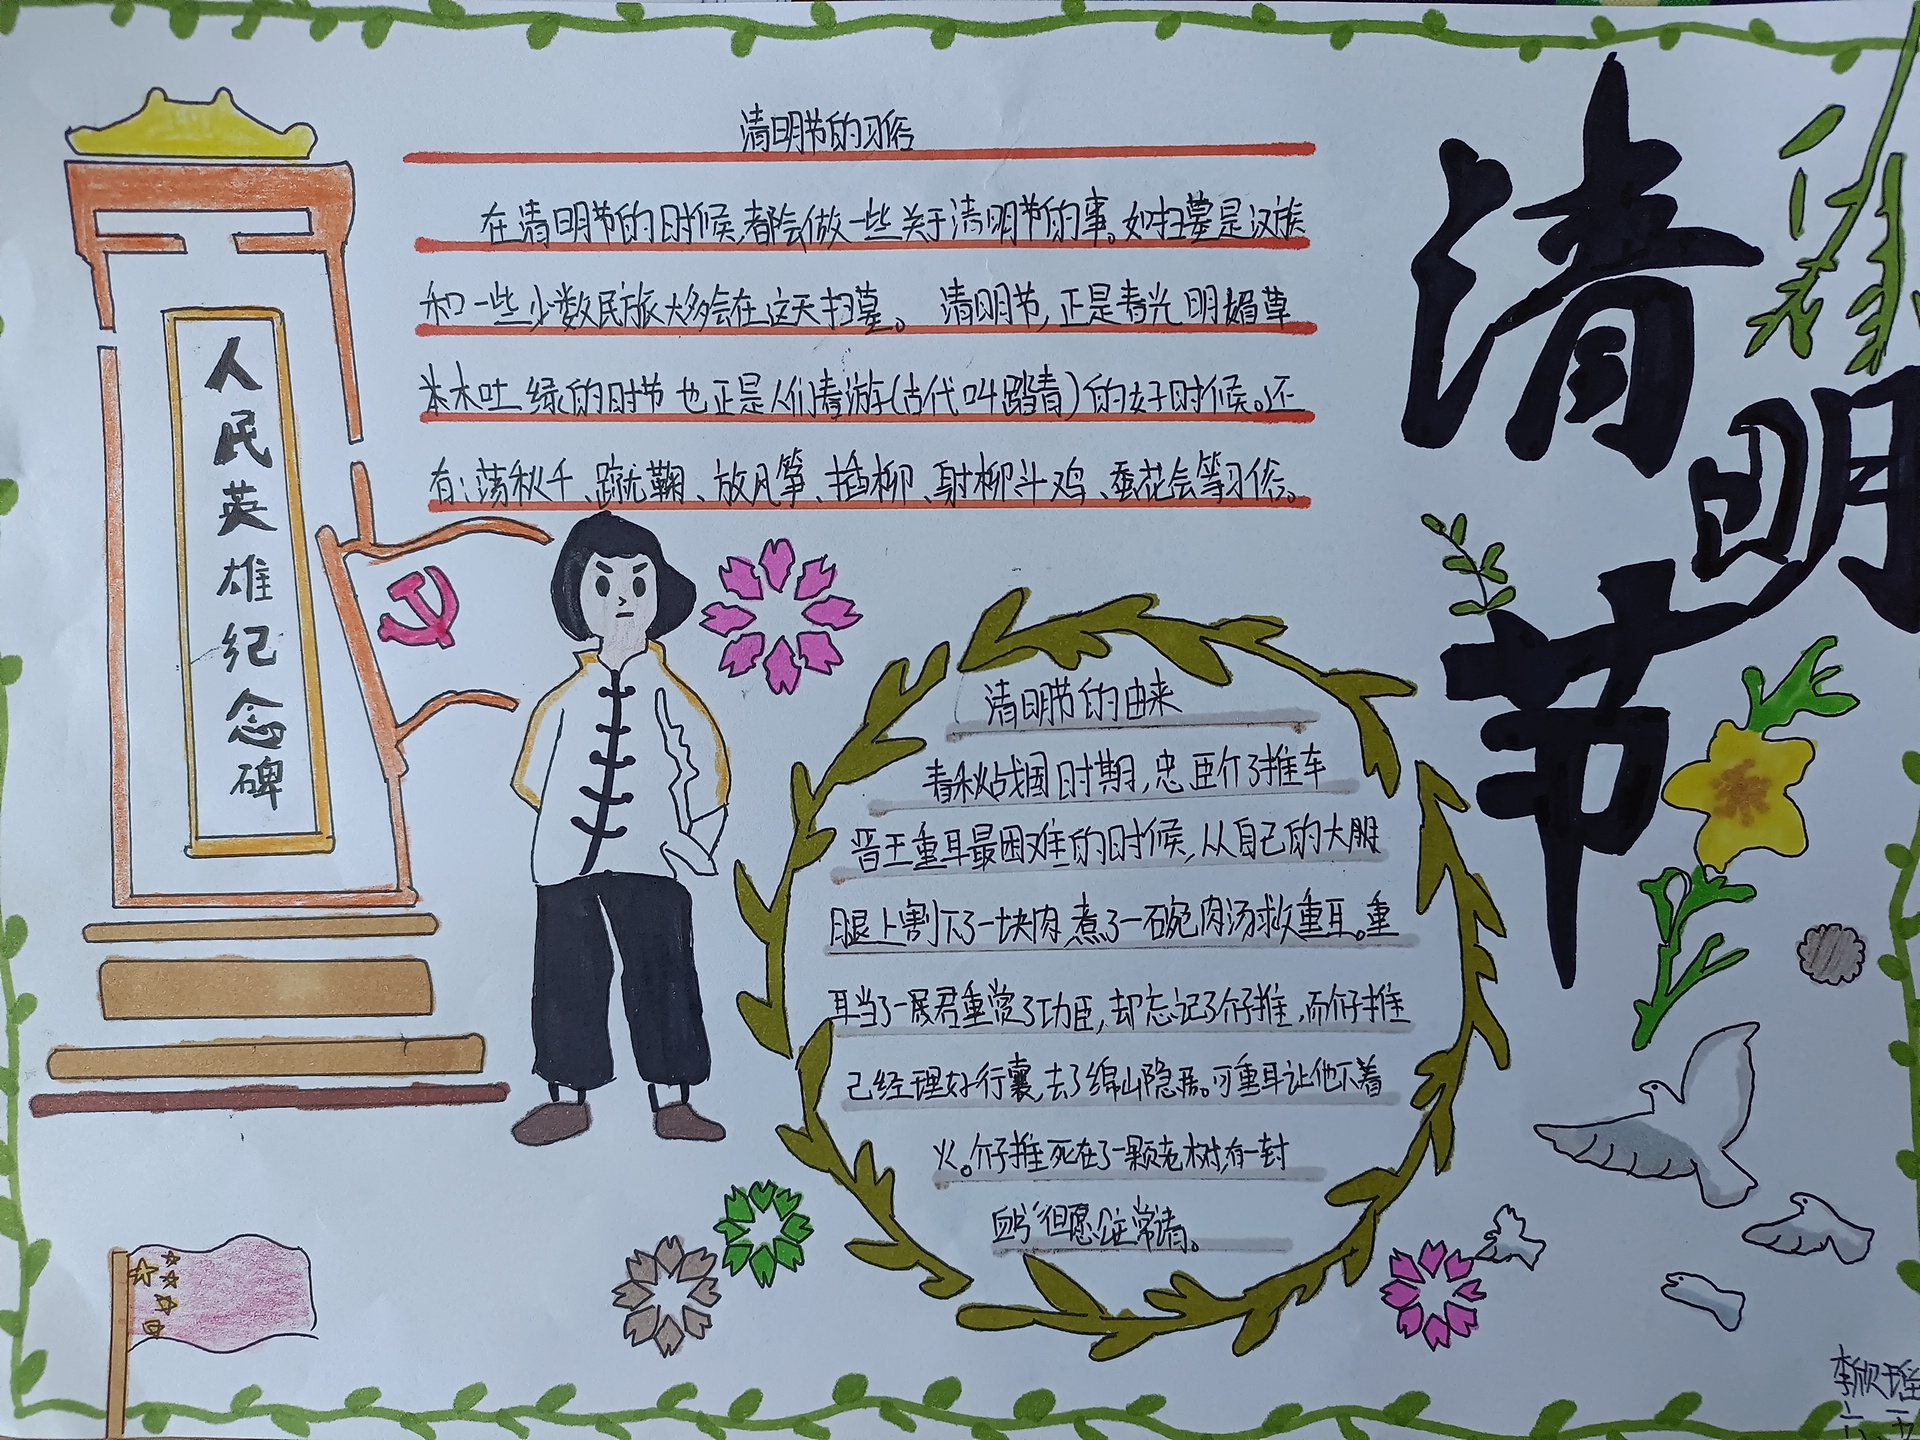 清明节的习俗
在清明节的时候,都会做一些关于清明节的事。如扫墓是汉族
和一些少数民族大多会在这天扫墓。 清明节,正是春光明媚草
木吐绿的时节也正是人们春游(古代叫踏青)的好时候。还
有:荡秋千、蹴鞠、放风筝、插柳、射柳斗鸡、蚕花会等习俗。
清明节
人民英雄纪念碑
清明节的由来
春秋战国时期,忠臣介子推车
晋王重耳最困难的时候,从自己的大腿
腿上割下了一块肉,煮了一碗肉汤救重耳。重
耳当了一展君重赏了功臣,却忘记了介子推,而介子推
己经理好行囊,去了绵山隐居。可重耳让他下着
火。介子推死在了一颗老树,有一封
血书“但愿公主常清。
李欣瑶
六、五